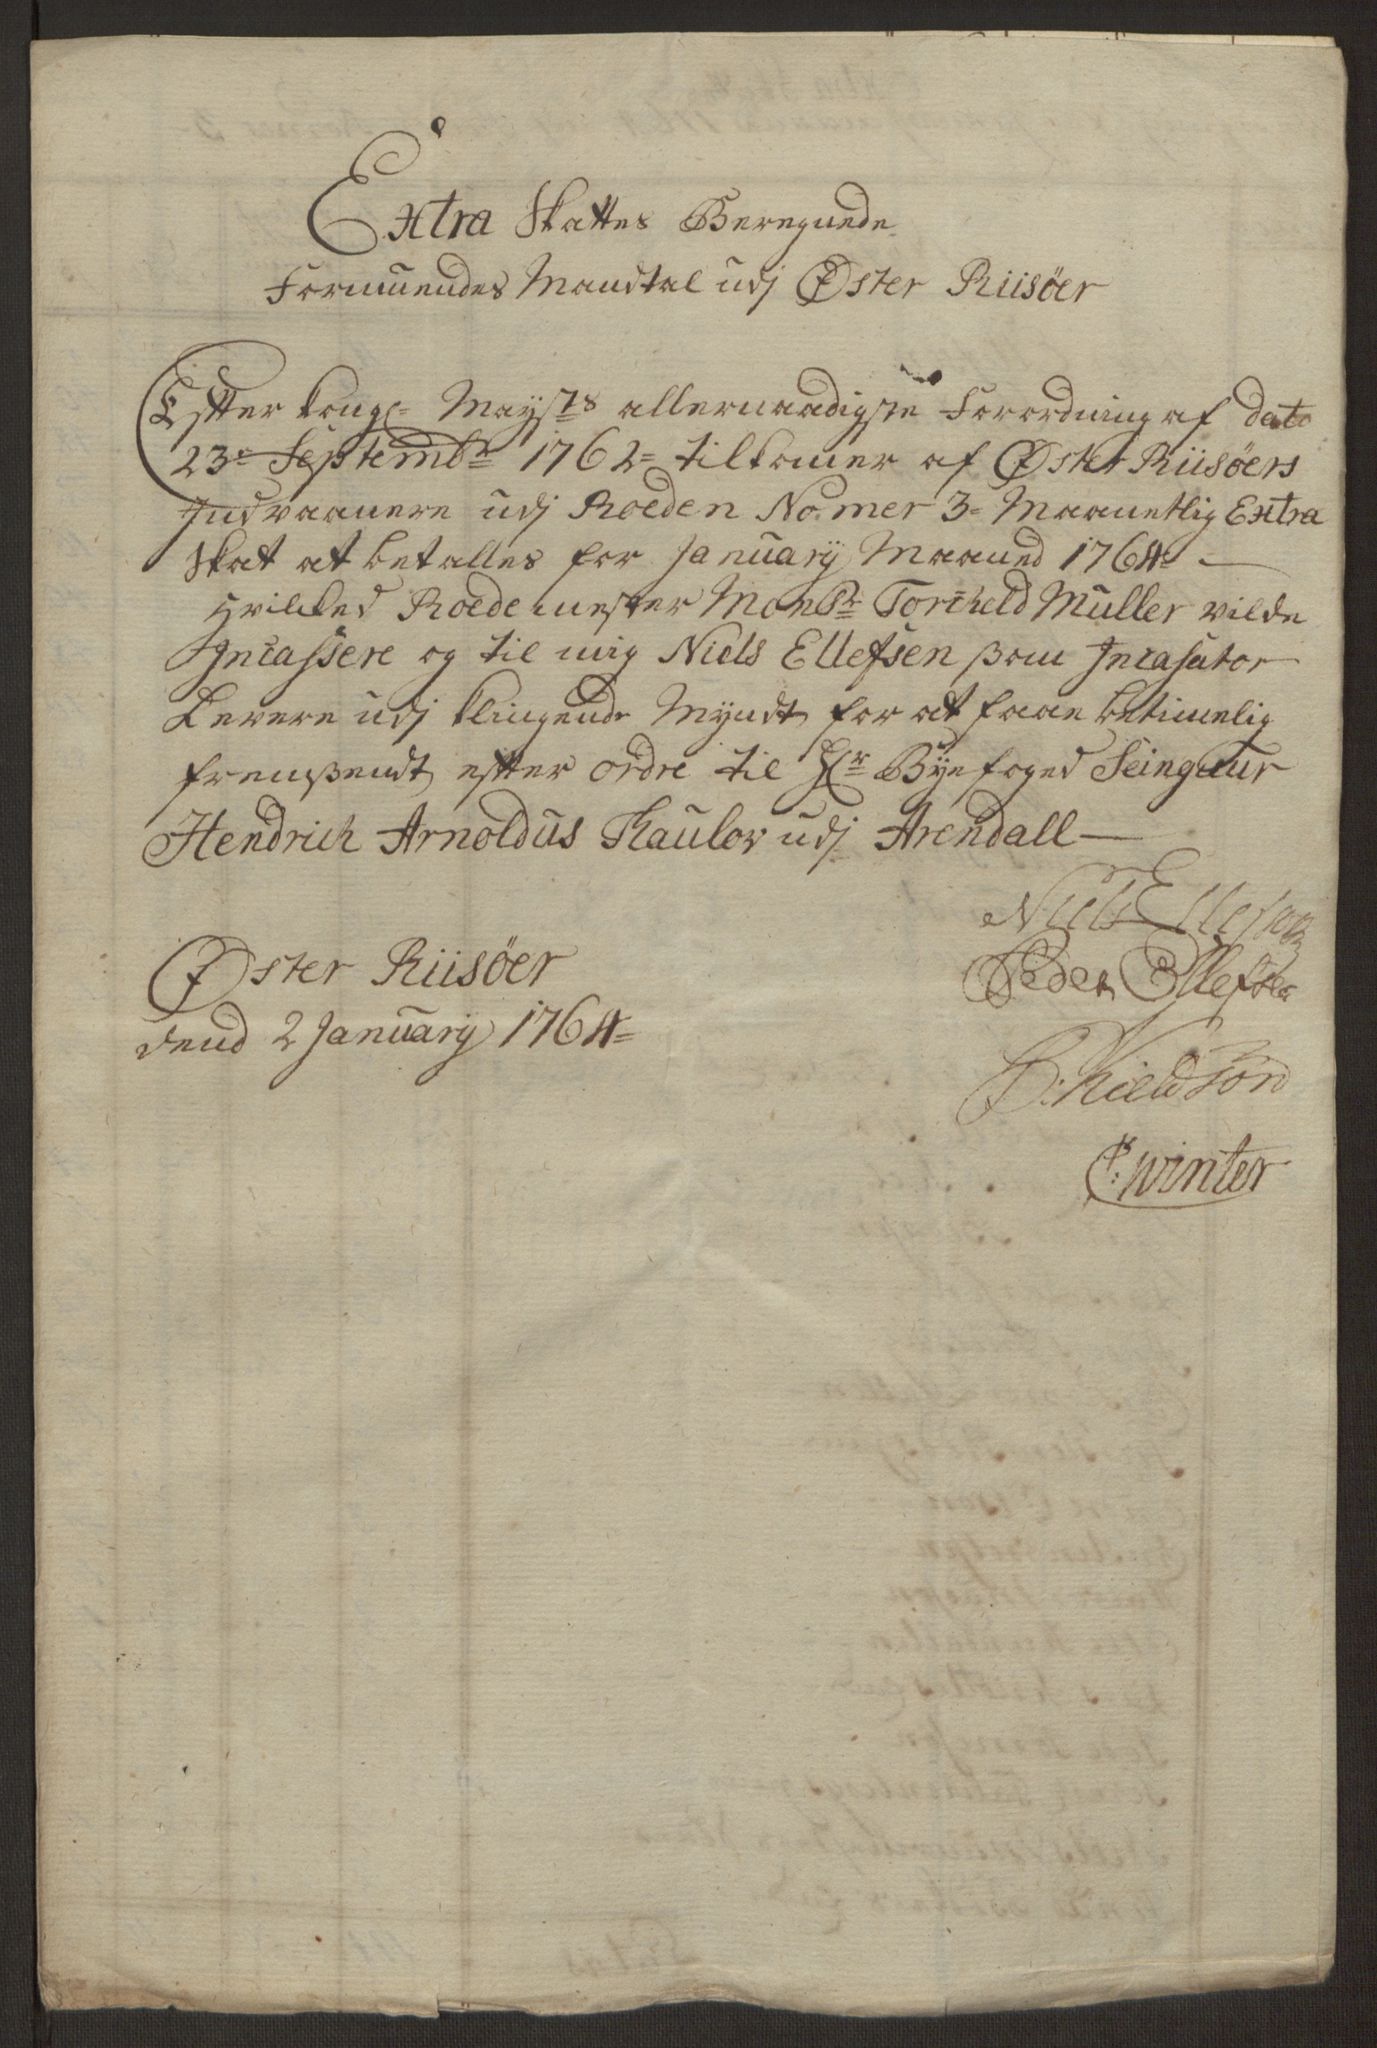 Extra Skattes Beregnede
Formuendes Mandtal udj Øster Riisöer
Effter Kongl= Mayst:s allernaadigste Forordning af dato
23e Septembr 1762= tilkomer af Øster Riisöers
Indvaanere udj Roeden No:mer 3= Maanetlig Extra
Skat at betalles for January Maaned 1764=
hvilked Rodemester Monsr Torkeld Muller vilde
Incassere og til mig Niels Ellefsen som Incasator
Levere udj klingende Myndt for at faae betimelig
fremsendt effter ordre til Hr Byefoged Seingeur
Hendrich Arnoldus Thaulov udj Arendall
Niels Ellefsen
Øster Riisöer
Peder Ellefsen
dend 2 January 1764=
Winter